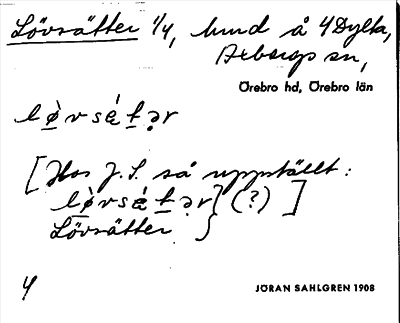 Lövsätter 1/4, hmd å YDylta,
Axbergs sn,
Örebro hd, Örebro län
lø̀vsǽtər
[Hos J. S. så uppställt:
lø̀vsǽtər } (?) ]
Lövsätter
4
JÖRAN SAHLGREN 1908